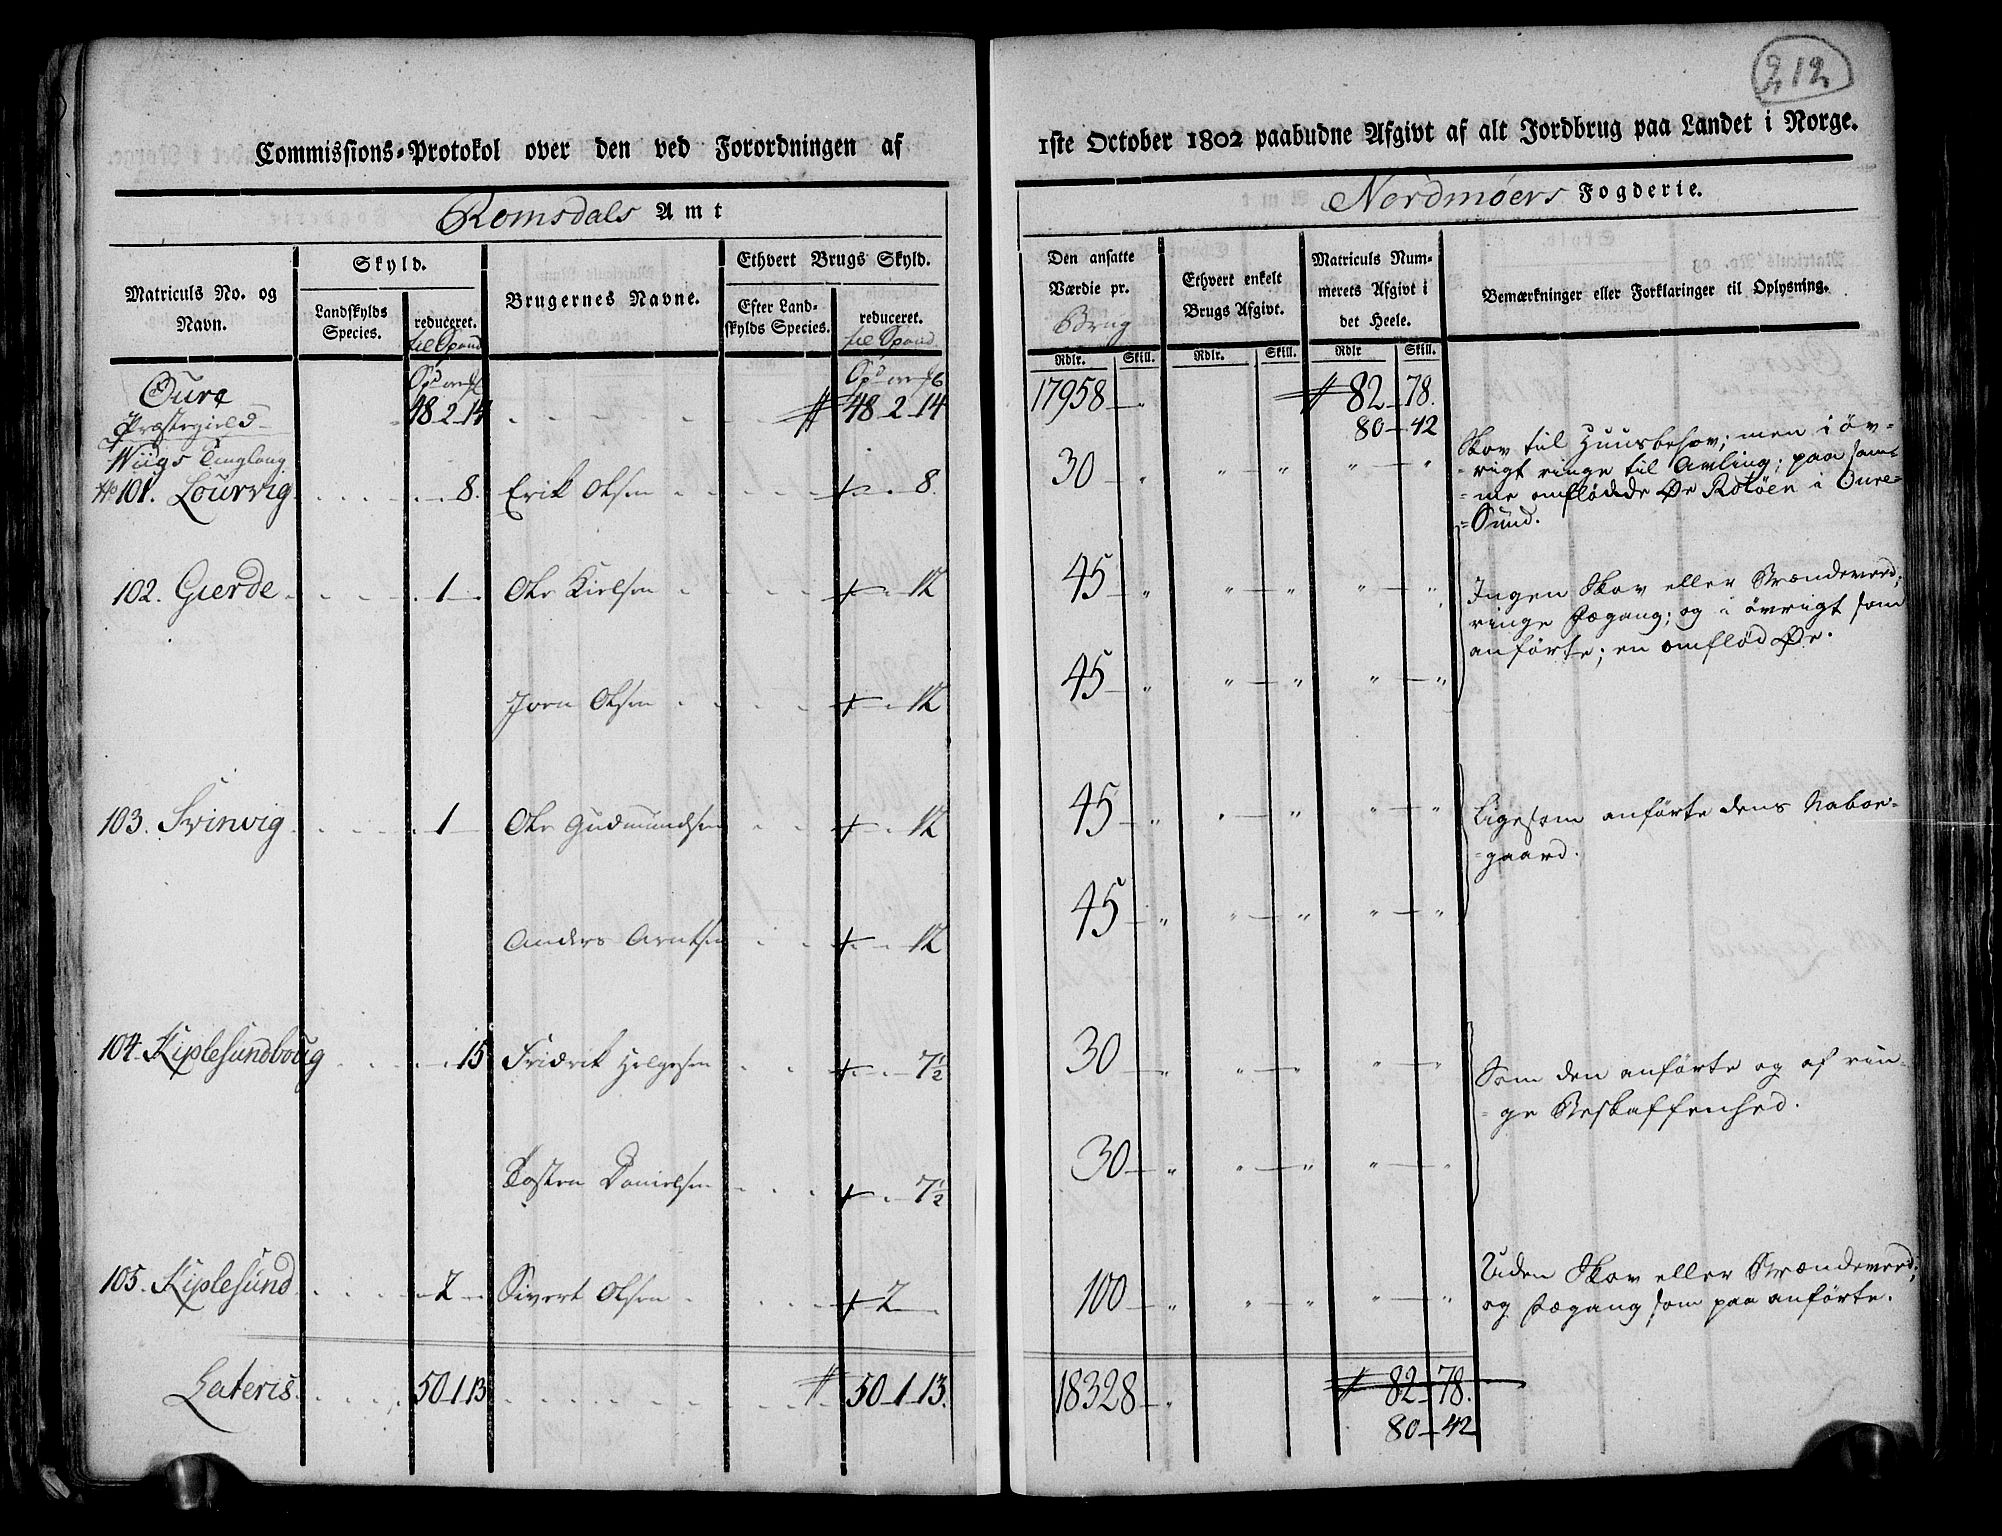 212
Commissions-Protokol over den ved Forordningen af 1ste October 1802 paabudne Afgivt af alt Jordbrug paa Landet i Norge.
Romsdals Amt
Nordmøers Fogderie.
Matriculs No. og Navn.
Skyld.
Landskylds Species.
reduceret. til Spand
Brugernes Navne.
Ethvert Brugs Skyld.
Efter Landskylds Species.
reduceret. til Spand
Den ansatte Værdie pr. Brug
Rdlr. Skill.
Ethvert enkelt Brugs Afgivt.
Rdlr. Skill.
Matriculs Nummerets Afgivt i det Heele.
Rdlr Skill.
Bemærkninger eller Forklaringer til Oplysning.
Oure Præstegield 48 2 14 48 2 14 17958 82 78.
80 42
Wiigs Tinglaug
No 101. Lourvig 8. Erik Olsen 8. 30 " " " " "
Skov til Huusbehov; men i öv-
-rigt ringe til Avling; paa sam-
-me omflödde Øe Rotöen i Oure-
-Sund.
102. Gierde 1 Ole Kielsen 12 45 " " " " "
Ingen Skov eller Brændeved;
ringe Fægang; og i övrigt som
anförte; en omflöd Øe.
Joen Olsen 12 45 " " " " "
103. Svinvig 1 Ole Gudmundsen 12 45 " " " " "
Ligesom anförte dens Naboe-
-gaard.
Anders Arntsen 12 45 " " " " "
104. Kiplesundboug 15 Fridrik Helgesen 7½ 30 " " " " "
Som den anförte og af rin-
-ge Beskaffenhed.
Tosten Danielsen 7½ 30 " " " " "
105. Kiplesund 2 Sivert Olsen 2 100 " " " " "
Uden Skov eller Brændeved;
og Fægang som paa anförte.
Lateris 50 1 13 50 1 13. 18328 " 82 78.
80 42